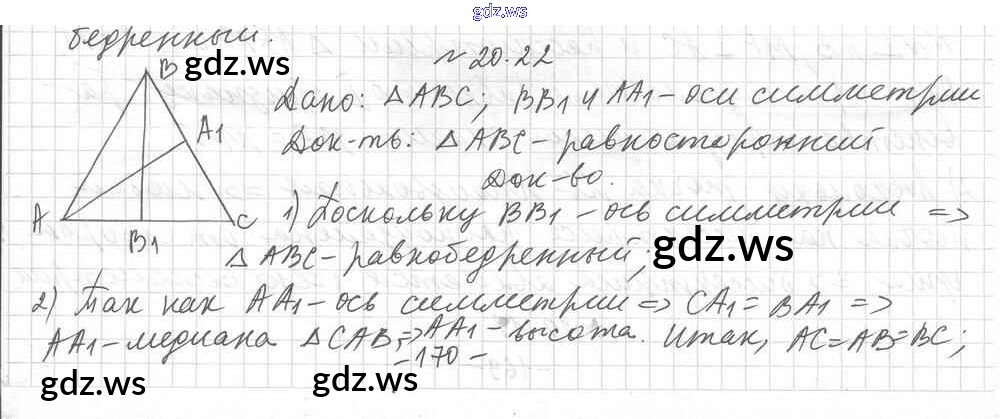 gdz.ws
бедренный.
№ 20.22
gdz.ws
B
Дано: △ABC; BB1 и AA1 - оси симметрии
A1
Док-ть: △ABC - равносторонний
Док-во.
A
C
B1
1) Поскольку BB1 - ось симметрии =>
△ABC - равнобедренный;
gdz.ws
2) Так как AA1 - ось симметрии => CA1 = BA1 =>
AA1 - медиана △CAB, => AA1 - высота. Итак, AC = AB = BC;
- 170 -
gdz.ws
gdz.ws